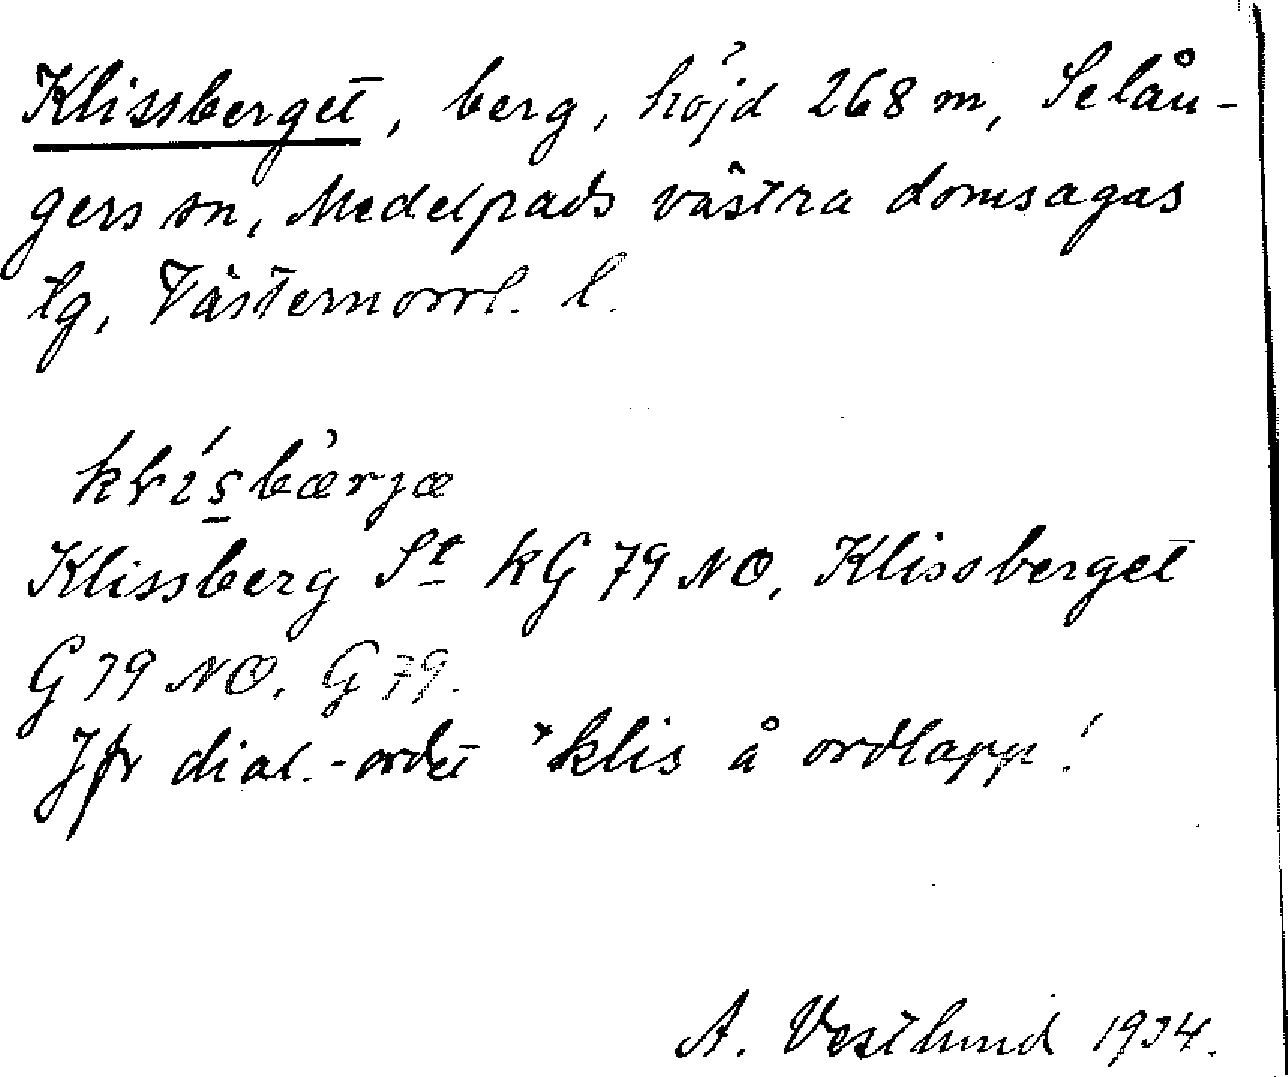 Klissberget, berg, höjd 268 m, Selån-
gers sn, Medelpads västra domsagas
tg, Västernorrl. l.
Klissberg St kG 79 NO, Klissberget
G 79 NO. G 79.
Jfr dial.-ordet *klis å ordlapp!
A. Vestlund 1934.